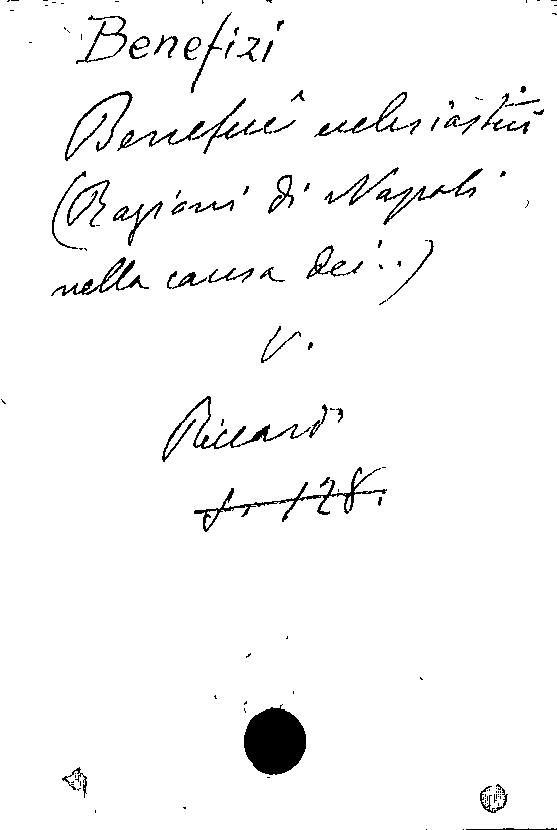 Benefizi
Beneficî ecclesiastici
(Ragioni di Napoli
nella causa dei...)
V.
Riccardi
128.